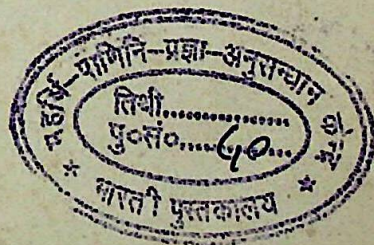 महर्षि-पाणिनि-प्रज्ञा-अनुसन्धान
तिथी................
पु०सं०....40....
* भारती पुस्तकालय *